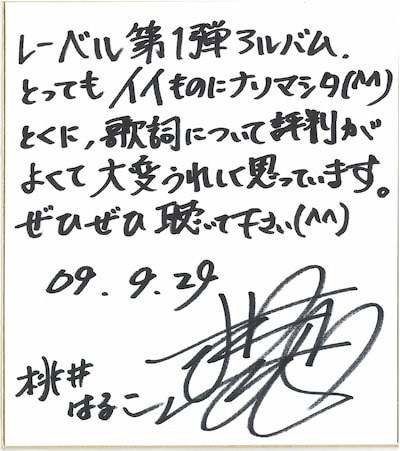 レーベル第1弾アルバム.
とってもイイものにナリマシタ(^^)
とくに,歌詞について評判が
よくて大変うれしく思っています。
ぜひぜひ聴いて下さい(^^)
09.9.29
桃井
はるこ